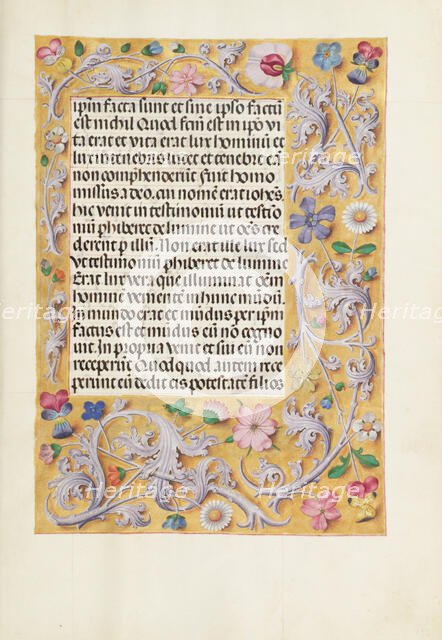 ipm facta sunt et sine ipso factu
est nichil Quod factu est in ipo vi
ta erat et vita erat lux hominu et
lux in tenebris lucet et tenebre ea
non comprehenderut Fuit homo
missus a deo cui nomen erat iohes
hic venit in testimoniu ut testio
niu phiberet de lumine ut oes cre
derent p illu Non erat ille lux sed
ut testimo niu phiberet de lumine
Erat lux vera que illuminat oem
homine veniente in hunc mudu
in mundo erat et mudus per ipm
factus est et mudus eu non cogno
uit In propria venit et sui eu non
receperut Quotquot autem rece
perunt eu dedit eis potestate filios
Heritage
Heritage
Heritage
Heritage
Heritage
Heritage